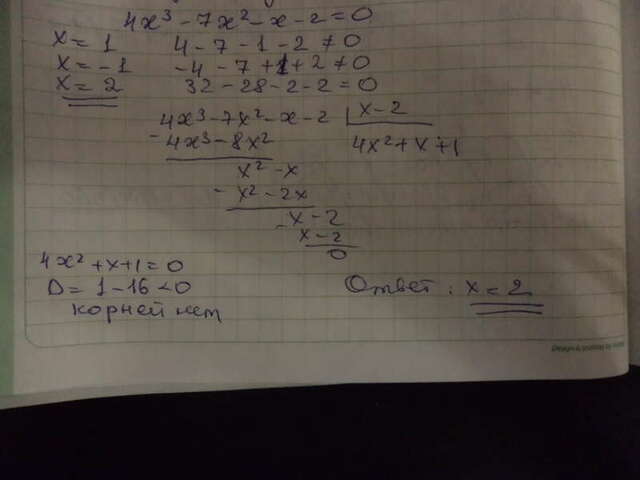 4x³ - 7x² - x - 2 = 0
x = 1 4 - 7 - 1 - 2 ≠ 0
x = -1 -4 - 7 + 1 + 2 ≠ 0
x = 2 32 - 28 - 2 - 2 = 0
4x³ - 7x² - x - 2 | x - 2
- 4x³ - 8x² 4x² + x + 1
x² - x
- x² - 2x
x - 2
- x - 2
0
4x² + x + 1 = 0
D = 1 - 16 < 0
корней нет
Ответ: x = 2